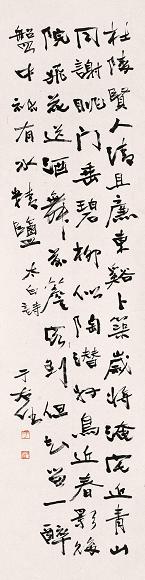 杜陵賢人清且廉東谿卜築歲將淹宅近青山
同謝朓門垂碧柳似陶潛好鳥迎春歌後
院飛花送酒舞前簷客到但知留一醉
盤中祇有水精鹽 太白詩
于右任